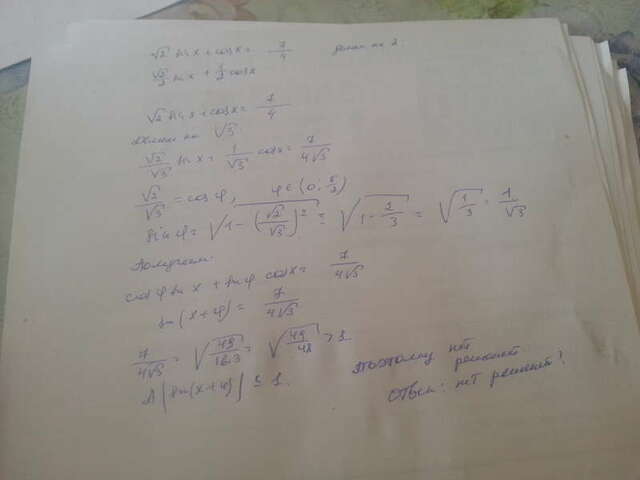 √2 sin x + cos x = 7/4 делим на 2
√2/2 sin x + 1/2 cos x
√2 sin x + cos x = 7/4
делим на √3
√2/√3 sin x + 1/√3 cos x = 7/4√3
√2/√3 = cos φ, φ ∈ (0;
sin φ = √(1 - (√2/√3)²) = √(1 - 2/3) = √(1/3) = 1/√3
Получаем:
cos φ sin x + sin φ cos x = 7/4√3
sin(x+φ) = 7/4√3
7/4√3 = √(49/16·3) = √(49/48) > 1.
А |sin(x+φ)| ≤ 1.
Поэтому нет
решений.
Ответ: нет решений!